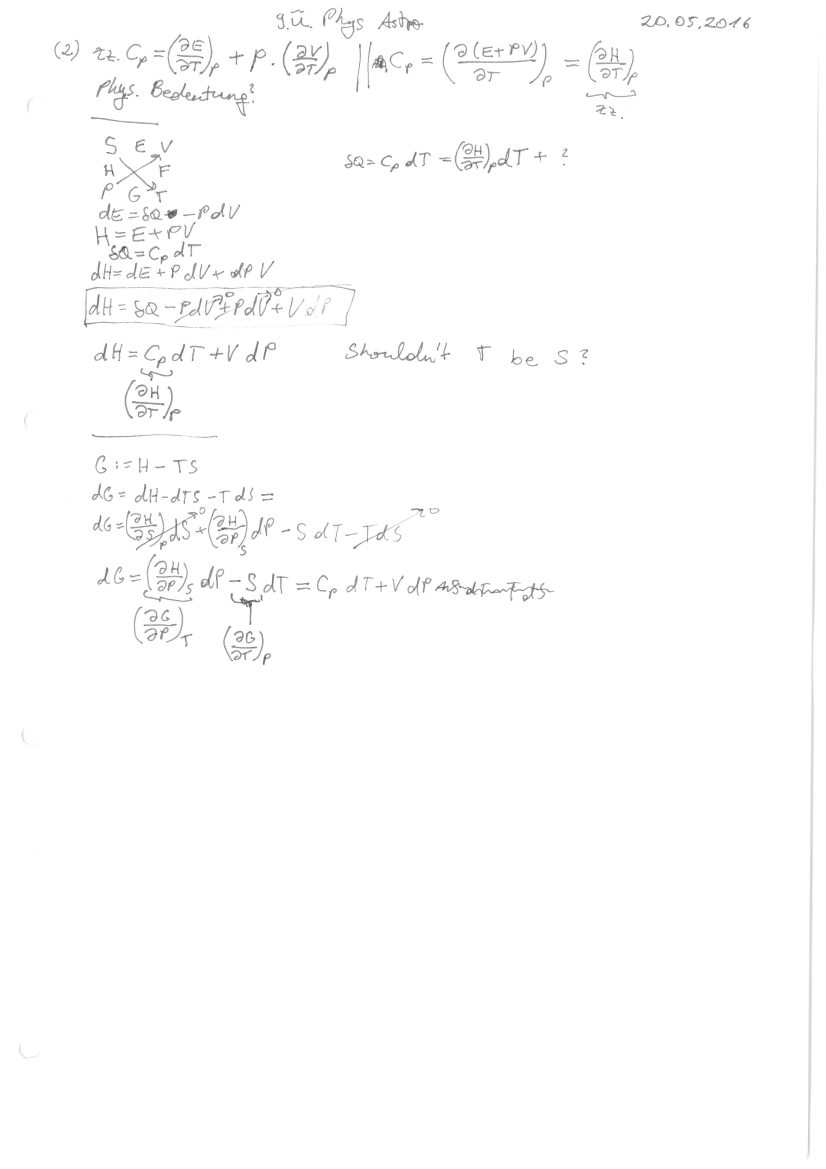 9.Ü. Phys Astro 20.05.2016
(2) zz. C_p = (∂E/∂T)_p + p · (∂V/∂T)_p || C_p = (∂(E+PV)/∂T)_p = (∂H/∂T)_p
Phys. Bedeutung? zz.
S E V
H F
P G T
δQ = C_p dT = (∂H/∂T)_p dT + ?
dE = δQ - P dV
H = E + PV
δQ = C_p dT
dH = dE + P dV + dP V
dH = δQ - P dV + P dV + V dP
dH = C_p dT + V dP Shouldn't T be S?
(∂H/∂T)_p
G := H - TS
dG = dH - dTS - T dS =
dG = (∂H/∂S)_p dS →0 + (∂H/∂P)_S dP - S dT - T dS →0
dG = (∂H/∂P)_S dP - S dT = C_p dT + V dP
(∂G/∂P)_T (∂G/∂T)_p